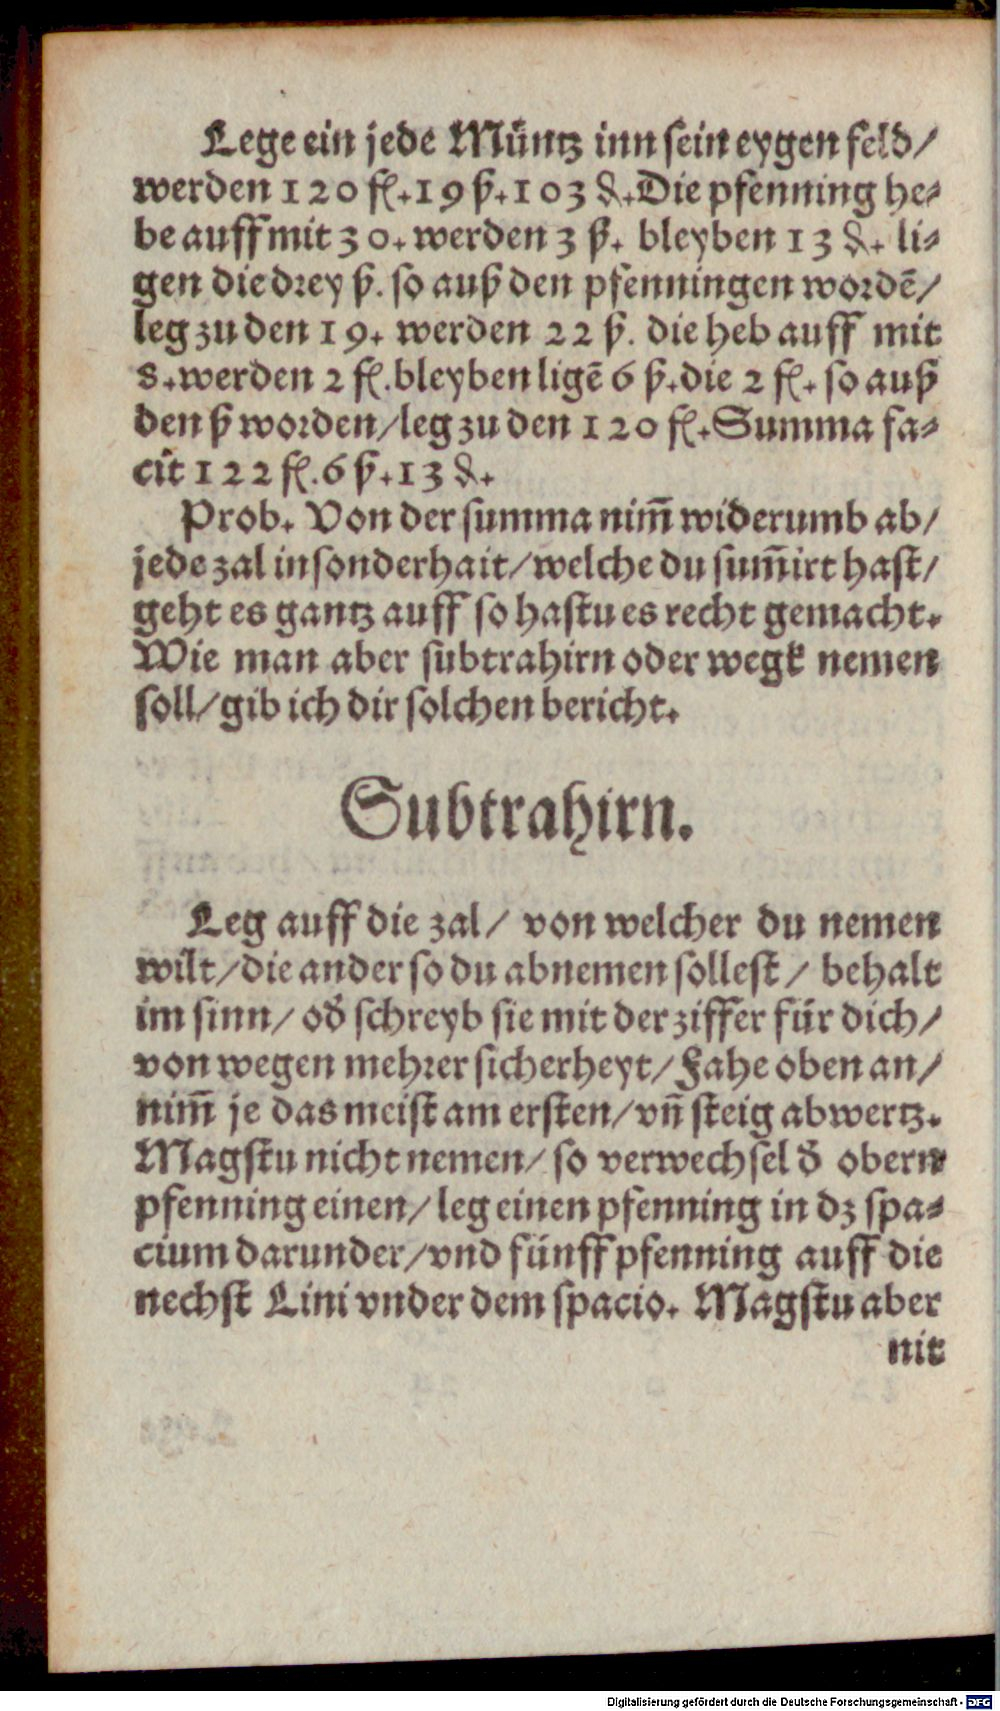 Lege ein jede Müntz inn sein eygen feld/
werden 120 fl. 19 ß. 103 ₰. Die pfenning he-
be auff mit 30. werden 3 ß. bleyben 13 ₰. li-
gen die drey ß. so auß den pfenningen wordē/
leg zu den 19. werden 22 ß. die heb auff mit
8. werden 2 fl. bleyben ligē 6 ß. die 2 fl. so auß
den ß worden/leg zu den 120 fl. Summa fa-
cit 122 fl. 6 ß. 13 ₰.
Prob. Von der summa nim̄ widerumb ab/
jede zal insonderhait/welche du sum̄irt hast/
geht es gantz auff so hastu es recht gemacht.
Wie man aber subtrahirn oder wegk nemen
soll/gib ich dir solchen bericht.
Subtrahirn.
Leg auff die zal/ von welcher du nemen
wilt/die ander so du abnemen sollest/ behalt
im sinn/ od̄ schreyb sie mit der ziffer für dich/
von wegen mehrer sicherheyt/Fahe oben an/
nim̄ je das meist am ersten/vn̄ steig abwertz.
Magstu nicht nemen/ so verwechsel d̄ obern
pfenning einen/leg einen pfenning in dz spa-
cium darunder/vnd fünff pfenning auff die
nechst Lini vnder dem spacio. Magstu aber
nit
Digitalisierung gefördert durch die Deutsche Forschungsgemeinschaft - DFG